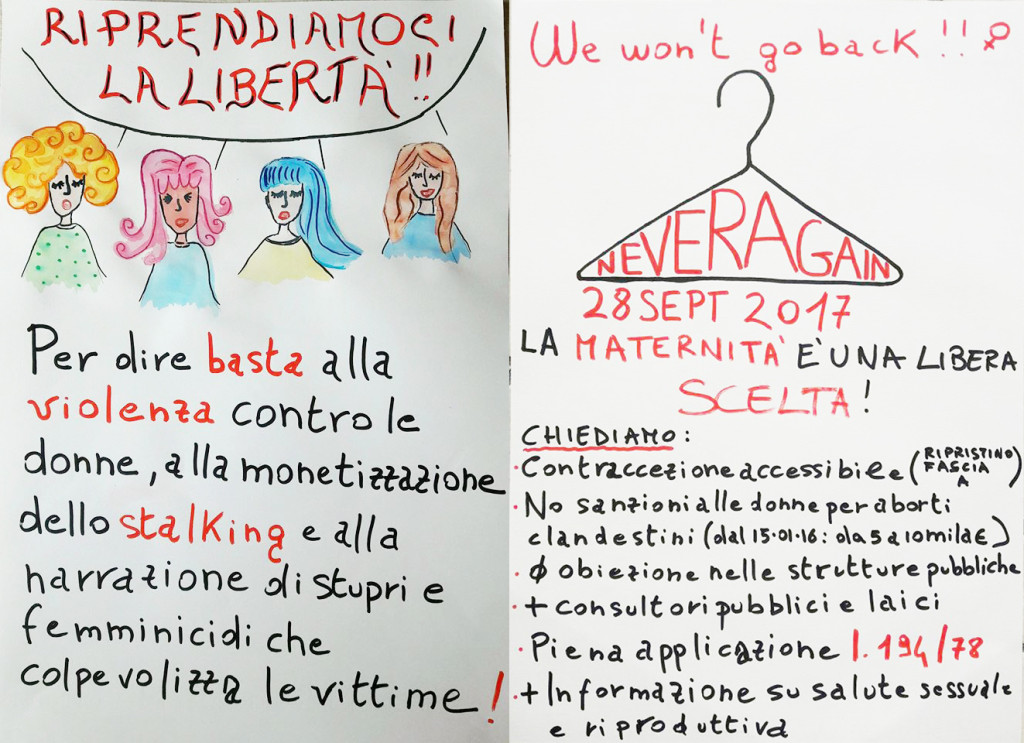 RIPRENDIAMOCI
LA LIBERTÀ!!
Per dire basta alla
violenza contro le
donne, alla monetizzazione
dello stalking e alla
narrazione di stupri e
femminicidi che
colpevolizza le vittime!
We won't go back!!
NEVERAGAIN
28 SEPT 2017
LA MATERNITÀ È UNA LIBERA
SCELTA!
CHIEDIAMO:
• Contraccezione accessibile (RIPRISTINO
FASCIA
A)
• No sanzioni alle donne per aborti
clandestini (dal 15·01·16: da 5 a 10mila€)
• Ø obiezione nelle strutture pubbliche
• + consultori pubblici e laici
• Piena applicazione l. 194/78
• + Informazione su salute sessuale
e riproduttiva